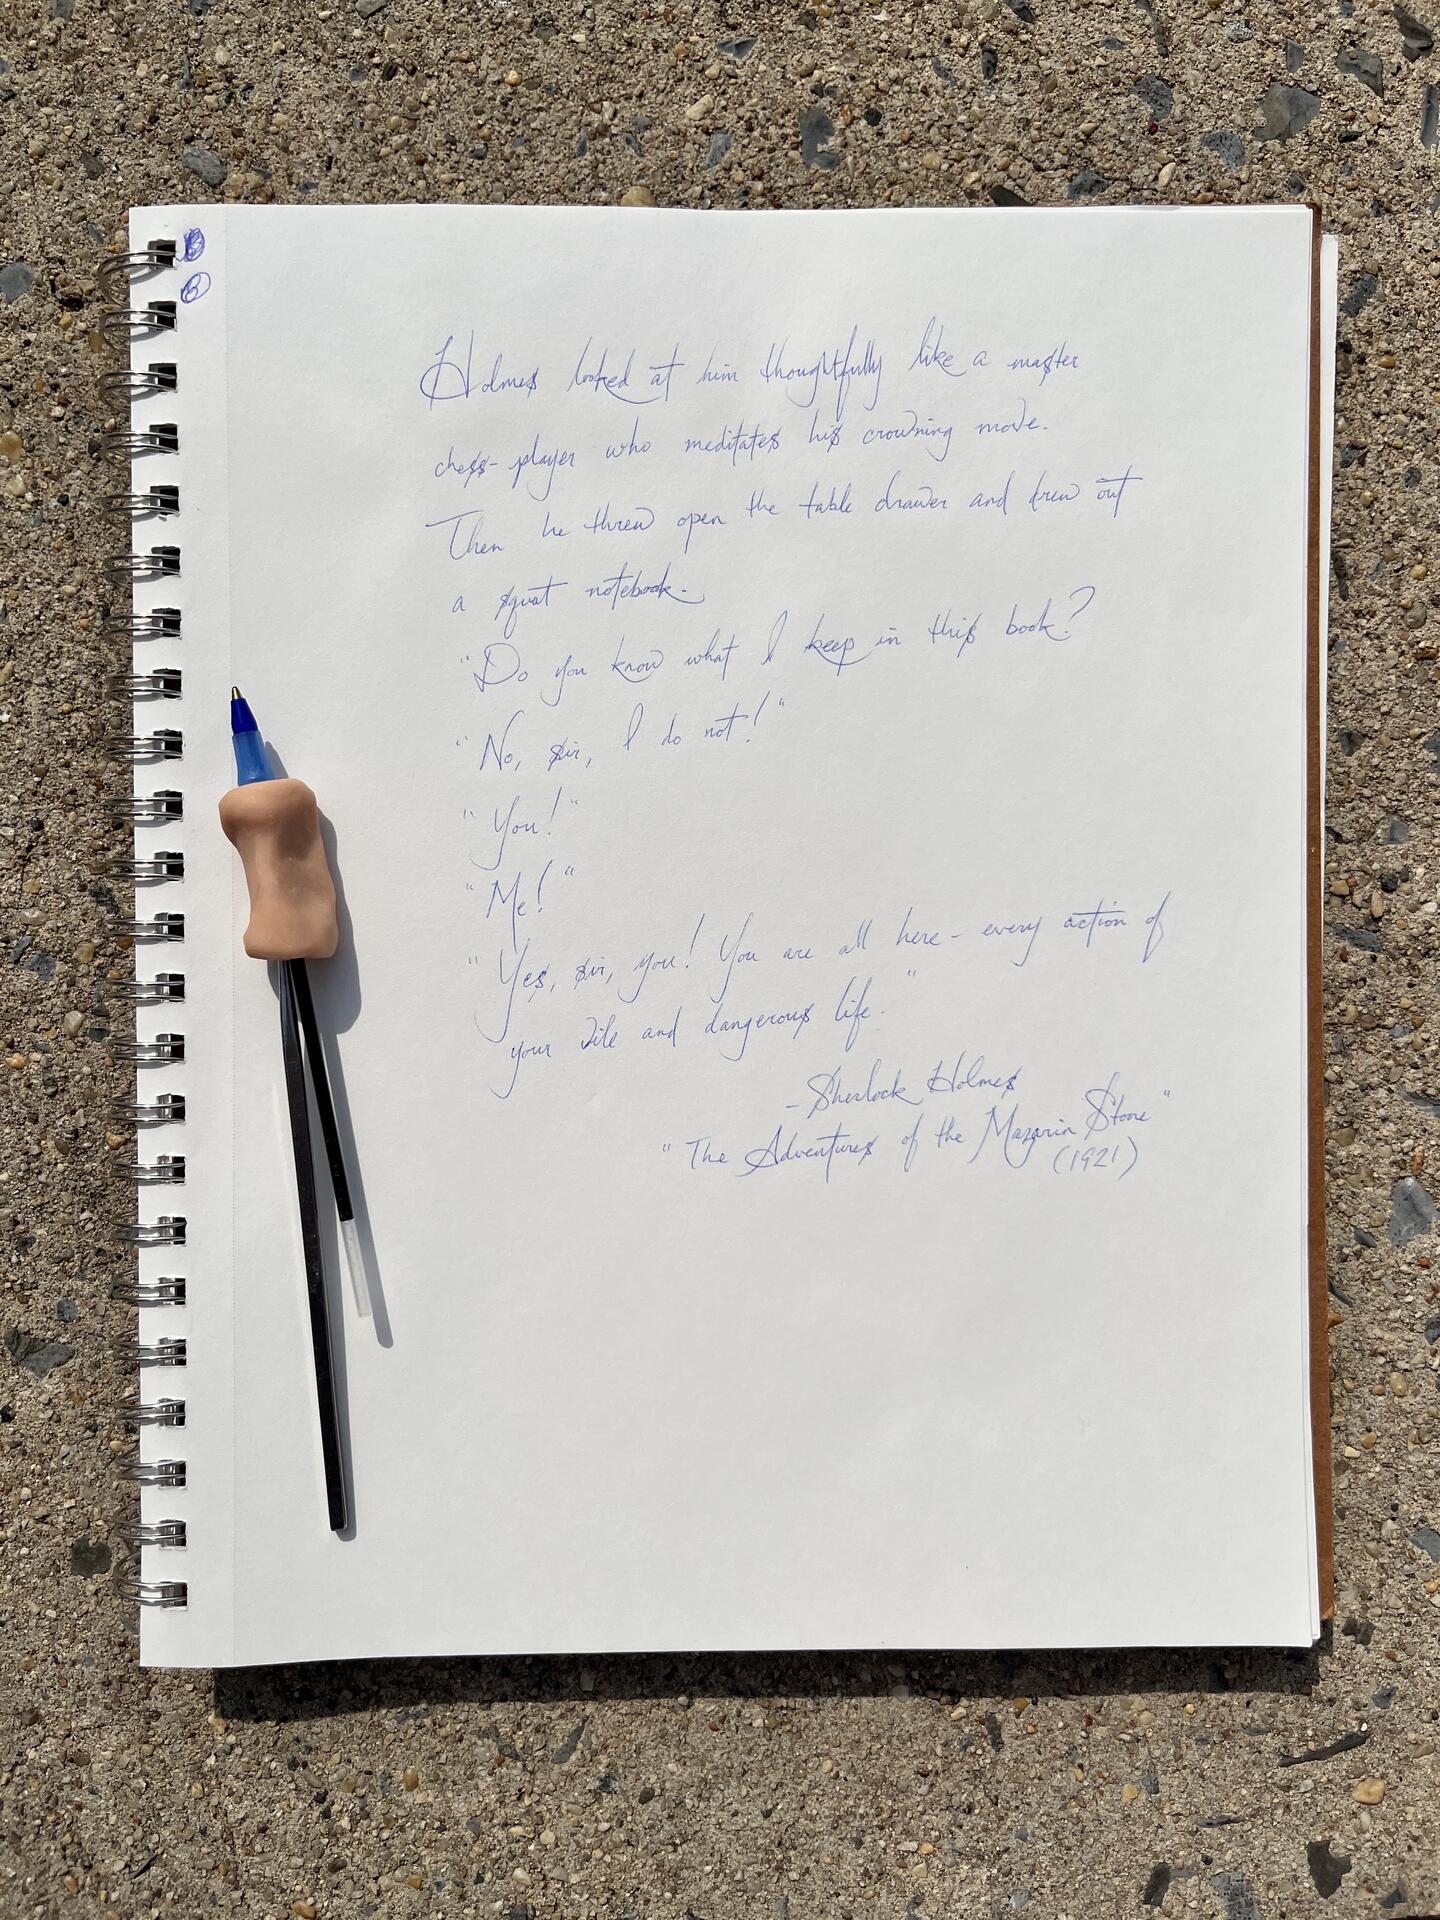 Holmes looked at him thoughtfully like a master
chess-player who meditates his crowning move.
Then he threw open the table drawer and drew out
a squat notebook.
"Do you know what I keep in this book?
"No, sir, I do not!"
"You!"
"Me!"
"Yes, sir, you! You are all here - every action of
your vile and dangerous life."
- Sherlock Holmes
"The Adventures of the Mazarin Stone"
(1921)